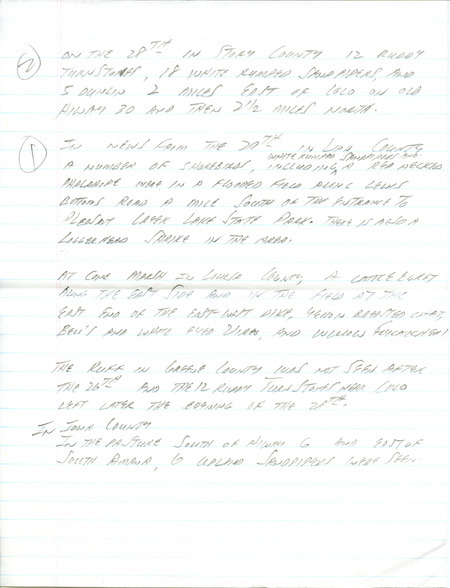 ② ON THE 28TH IN STORY COUNTY 12 RUDDY
TURNSTONES, 18 WHITE RUMPED SANDPIPERS AND
5 DUNLIN 2 MILES EAST OF COLO ON OLD
HIWAY 30 AND THEN 2 1/2 MILES NORTH.
① IN NEWS FORM THE 29TH IN LINN COUNTY
WHITE RUMPED SANDPIPERS AND
A NUMBER OF SHOREBIRDS, INCLUDING, A RED NECKED
PHALAROPE WERE IN A FLOODED FIELD ALONG LEWIS
BOTTOMS ROAD A MILE SOUTH OF THE ENTRANCE TO
PLEASANT CREEK LAKE STATE PARK. THERE IS ALSO A
LOGGERHEAD SHRIKE IN THE AREA.
AT CONE MARSH IN LOUISA COUNTY, A CATTLE EGRET
ALONG THE EAST SIDE AND IN THE FIELD AT THE
EAST END OF THE EAST-WEST DIKE, YELLOW BREASTED CHAT,
BELL'S AND WHITE EYED VIREO, AND WILLOW FLYCATCHER.
THE RUFF IN GREENE COUNTY WAS NOT SEEN AFTER
THE 26TH AND THE 12 RUDDY TURNSTONES NEAR COLO
LEFT LATER THE EVENING OF THE 28TH.
IN IOWA COUNTY
IN THE PASTURE SOUTH OF HIWAY 6 AND EAST OF
SOUTH AMANA, 6 UPLAND SANDPIPERS WERE SEEN